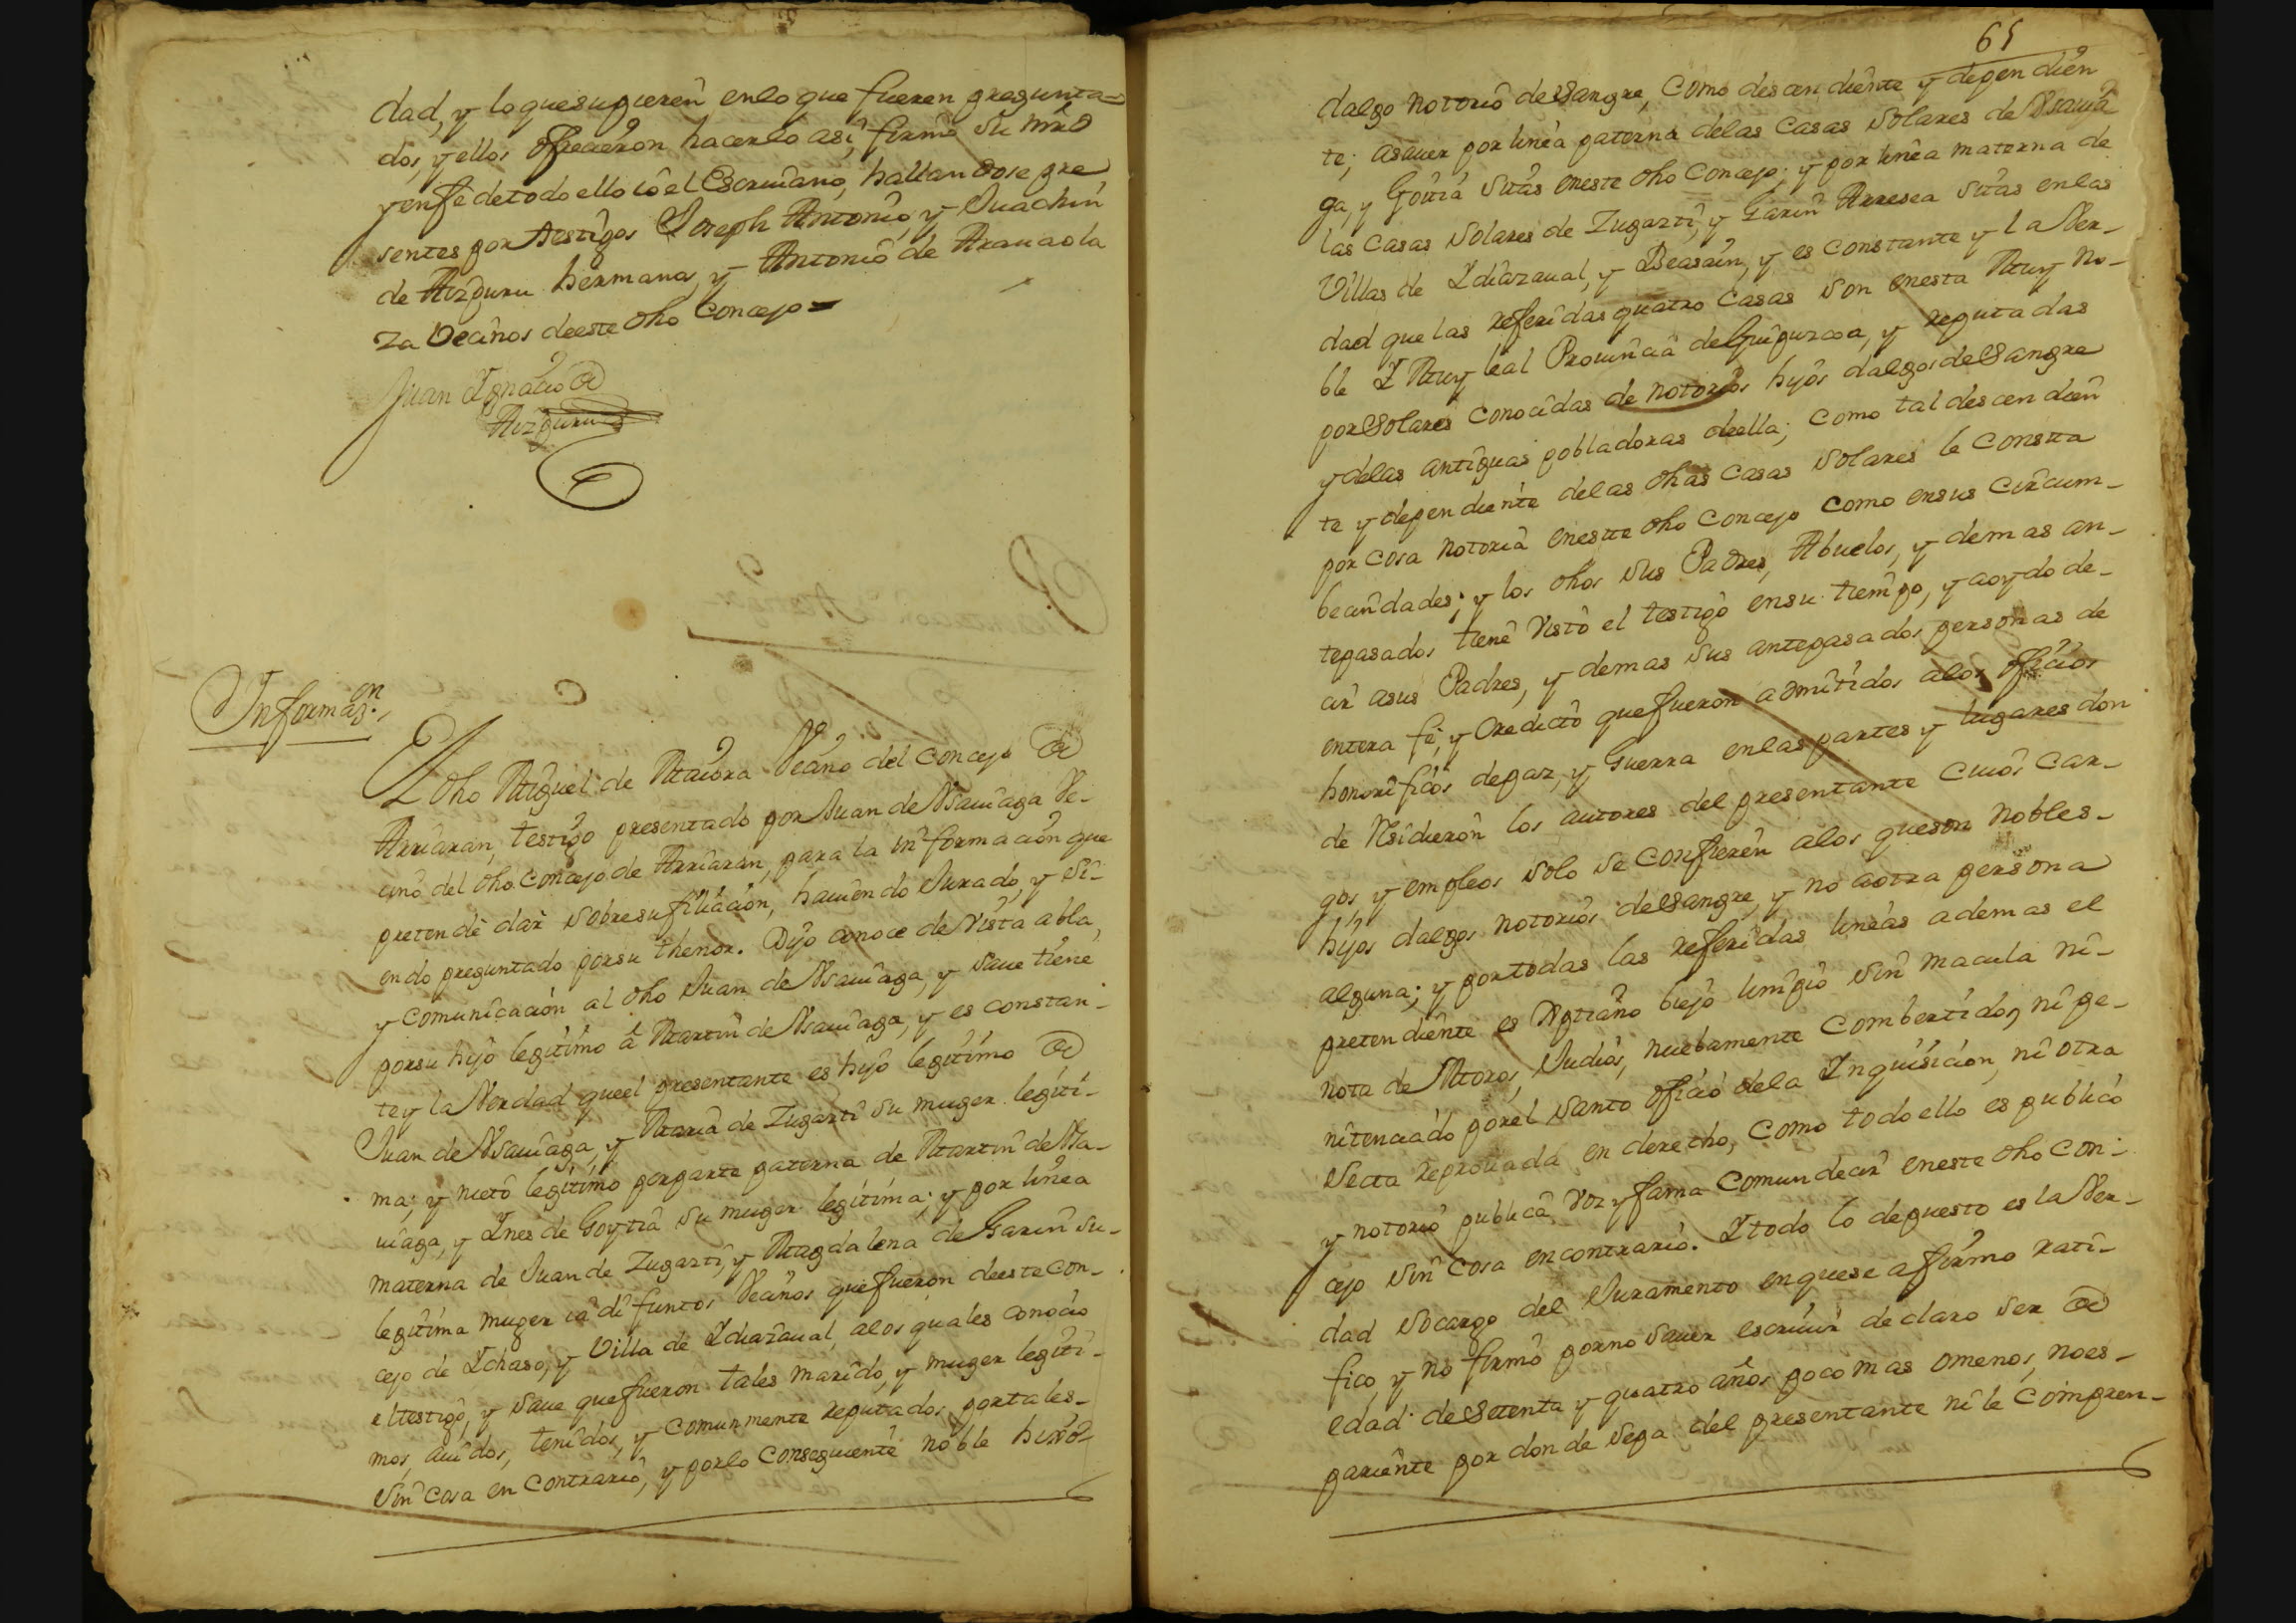 dad, y loquesupieren enlo que fueren pregunta-
dos, y ellos ofrecieron hacerlo asi, firmó su mrd
y enfé detodo ello ió el Escrivano, hallandose pre
sentes por testigos Joseph Antonio, y Juachin
de Aizpuru hermanos, y Antonio de Aranaola
za Vecinos deeste dho Concejo =
Juan Ygnacio de
Aizpuru
Informazon.
El dho Miguel de Maiora Vecino del concejo de
Arriaran, testigo presentado por Juan de Ysauiaga Ve-
cino del dho Concejo de Arriaran, para la informacion que
pretende dar sobresufiliacion, hauiendo Jurado, y si-
endo preguntado porsu thenor. Dijo conoce de Vista abla,
y comunicacion al dho Juan de Ysauiaga, y saue tiene
porsu hijo legitimo â Martin de Ysauiaga, y es constan-
te y la Verdad queel presentante es hijo legitimo de
Juan de Ysauiaga, y Maria de Zugasti su muger legiti-
ma; y nieto legitimo porparte paterna de Martin de Ysa-
uiaga, y Ynes de Goytia su muger legitima; y por linea
materna de Juan de Zugasti, y Magdalena de Garin su-
legitima muger ia difuntos Vecinos quefueron deeste con-
cejo de Ychaso, y Villa de Ydiazaual, alos quales conocio
eltestigo, y saue quefueron tales marido, y muger legiti-
mos, auidos, tenidos, y comunmente reputados portales-
sin cosa en contrario, y porlo conseguiente noble hixo-
65
dalgo notorio desangre, como descendiente y dependien
te; asauer por linea paterna delas Casas solares de Ysauia
ga, y Goitia sitas eneste dho Concejo; y por linea materna de
las Casas solares de Zugasti, y Garin Arresea sitas enlas
Villas de Ydiazaual, y Beasain, y es constante y la Ver-
dad que las referidas quatro Casas son enesta Muy No-
ble Y Muy leal Prouincia de Guipuzcoa, y reputadas
porsolares conocidas de notorios hijos dalgos de sangre
y delas antiguas pobladoras della; como tal descendien
te y dependiente delas dhas Casas solares le consta
por cosa notoria eneste dho concejo como ensus circum-
becindades; y los dhos sus Padres, Abuelos, y demas an-
tepasados tiene Visto el testigo ensu tiempo, y aoydo de-
cir asus Padres, y demas sus antepasados personas de
entera fé, y credicto quefueron admitidos alos oficios
honorificos depaz, y Guerra enlas partes y lugares don
de Residieron los autores del presentante cuios car-
gos, y empleos solo se confieren alos queson nobles-
hijos dalgos notorios desangre, y no aotra persona
alguna; y portodas las referidas lineas ademas el
pretendiente es Xptiano biejo limpio sin macula ni-
nota de Moros, Judios, nuebamente combertidos, ni pe-
nitenciado porel santo oficio dela Inquisicion, ni otra
secta reprouada en derecho, como todo ello es publico
y notorio publica Voz y fama comun decir eneste dho con-
cejo sin cosa encontrario. Y todo lo depuesto es la Ver-
dad socargo del Juramento enquese afirmo rati-
fico, y no firmó porno sauer escriuir declaro ser de
edad de setenta y quatro años poco mas omenos, noes-
pariente por donde sepa del presentante ni le compren-